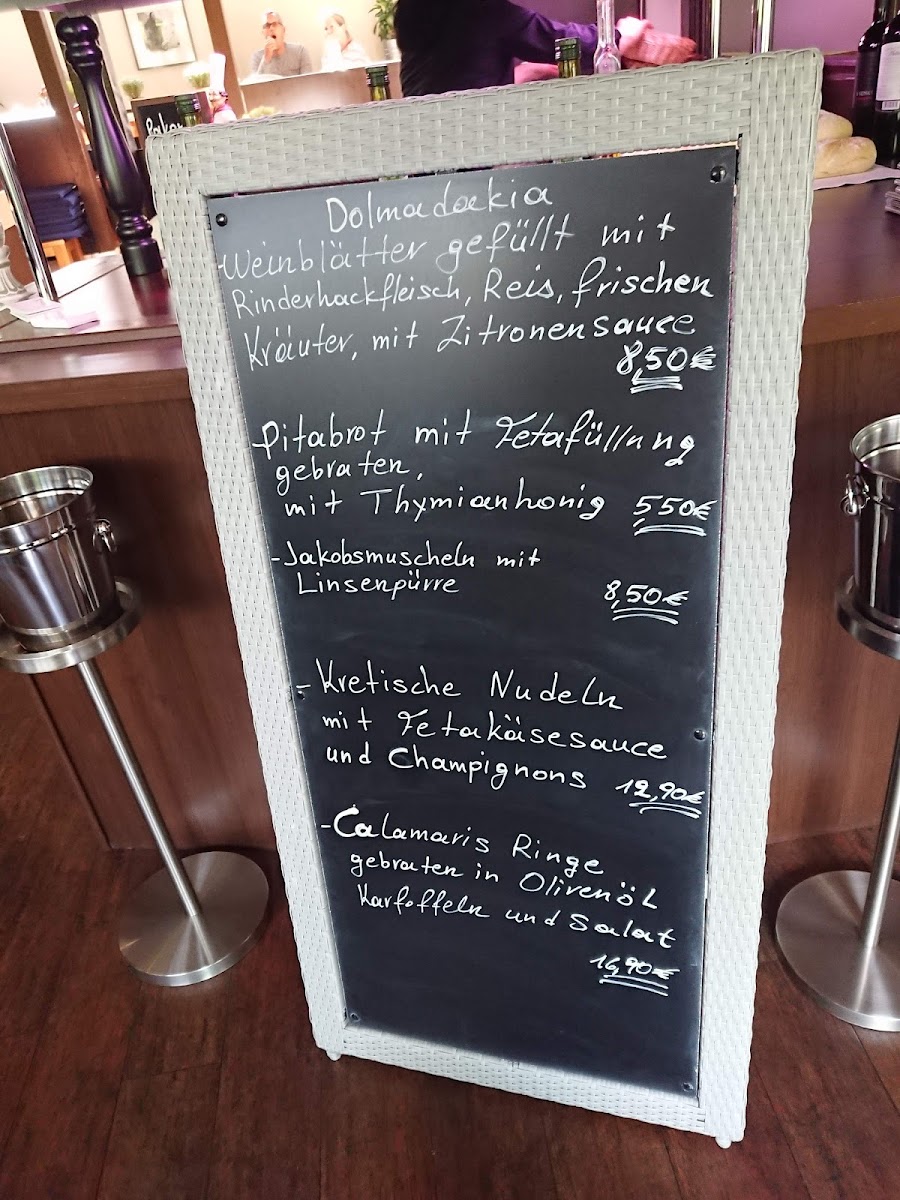 Dolmadakia
-Weinblätter gefüllt mit
Rinderhackfleisch, Reis, frischen
Kräuter, mit Zitronensauce
8,50€
-Pitabrot mit Fetafüllung
gebraten,
mit Thymianhonig 5,50€
-Jakobsmuscheln mit
Linsenpürre
8,50€
- Kretische Nudeln
mit Fetakäsesauce
und Champignons 12,90€
-Calamaris Ringe
gebraten in Olivenöl
Kartoffeln und Salat
16,90€